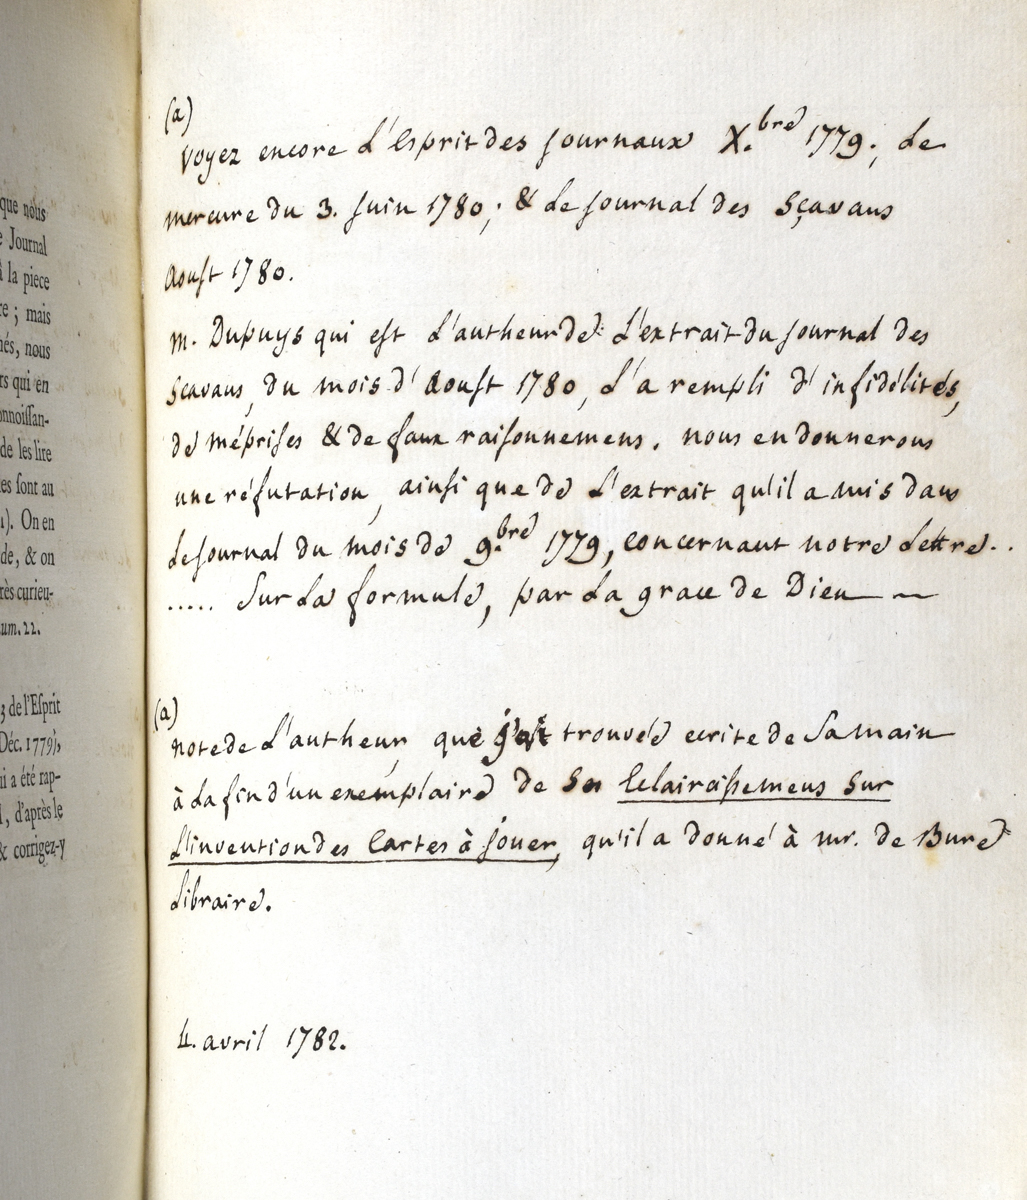 que nous
e Journal
à la piece
re ; mais
nés, nous
rs qui en
onnoiſſan-
de les lire
es ſont au
1). On en
de, & on
rès curieu-
um. 22.
3 de l'Eſprit
Déc. 1779),
ui a été rap-
I, d'après le
& corrigez-y
(a)
Voyez encore L'esprit des Journaux X.bre 1779 ; Le
mercure du 3. Juin 1780 ; & Le Journal des Sçavans
Aoust 1780.
M. Dupuys qui est L'autheur de L'extrait du Journal des
Sçavans, du mois d'Aoust 1780, L'a rempli d'infidélités,
de méprises & de faux raisonnemens. nous en donnerons
une réfutation, ainsi que de L'extrait qu'il a mis dans
Le Journal du mois de 9.bre 1779, concernant notre Lettre..
..... Sur La formule, par La grace de Dieu
(a)
note de L'autheur, que j'ai trouvée ecrite de Sa main
à La fin d'un exemplaire de Ses Eclaircissemens Sur
L'invention des Cartes à Jouer, qu'il a donné à mr. de Bure
Libraire.
4. avril 1782.